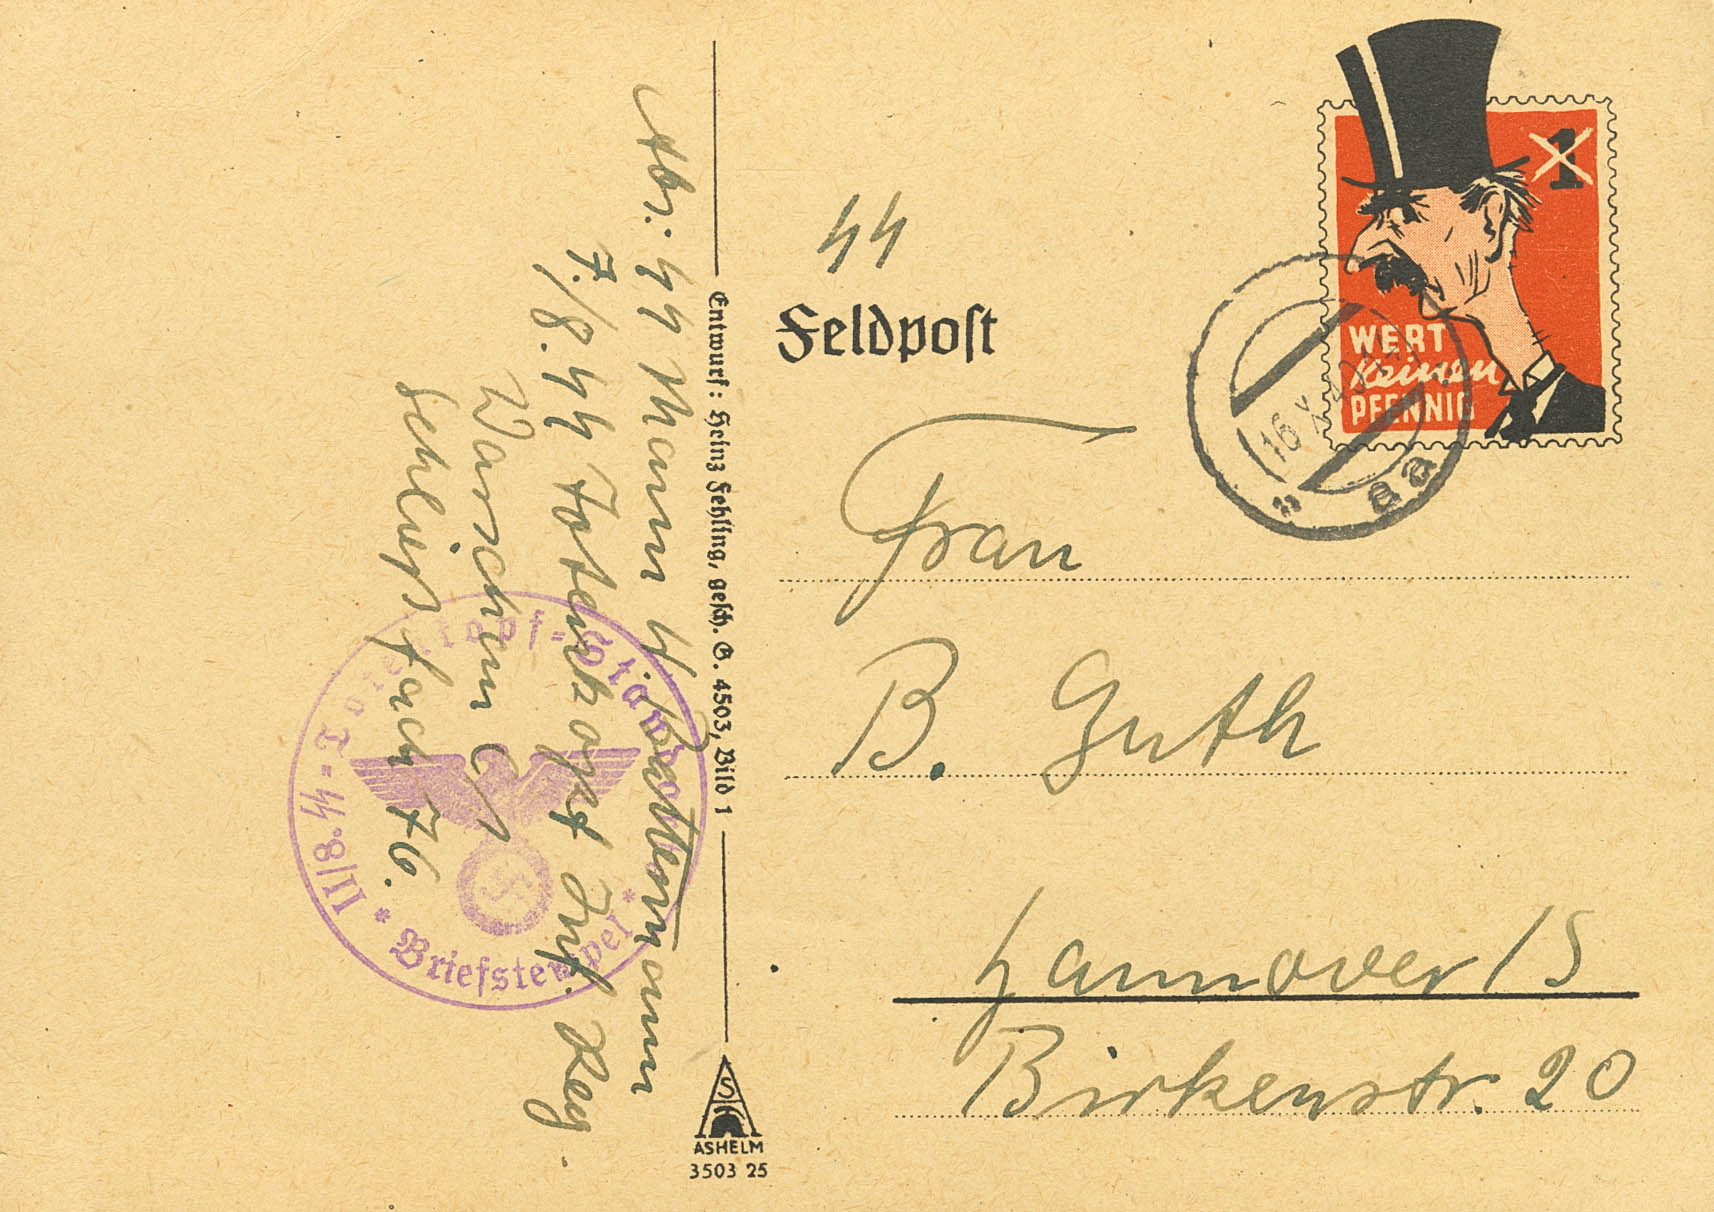 Abs. ᛋᛋ Mann H. Battermann
7./8. ᛋᛋ Totenkopf Inf. Reg
Warschau C 1
Schließfach 76.
II/8. ᛋᛋ-Totenkopf-Standarte
* Briefstempel *
Entwurf: Heinz Fehling, gesch. G. 4503, Bild 1
ASHELM
3503 25
ᛋᛋ
Feldpost
1
WERT
keinen
PFENNIG
16 X 40
Frau
B. Guth
Hannover / S
Birkenstr. 20